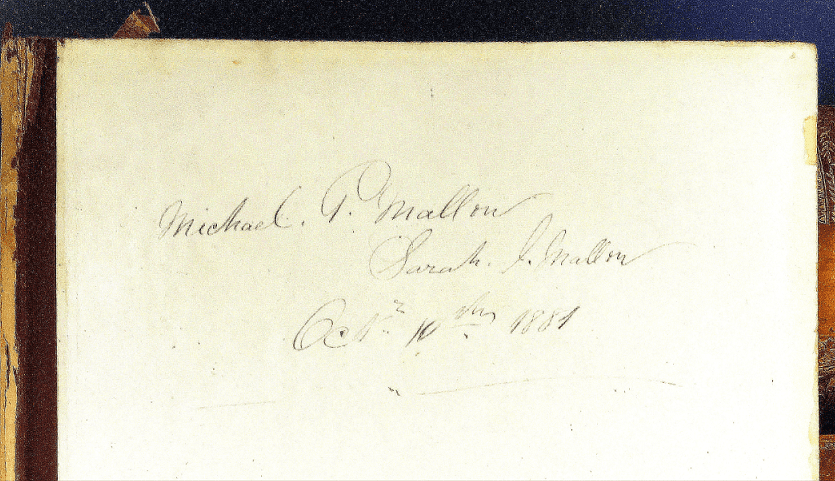 Michael. P. Mallon
Sarah. J. Mallon
Octr 10th 1881